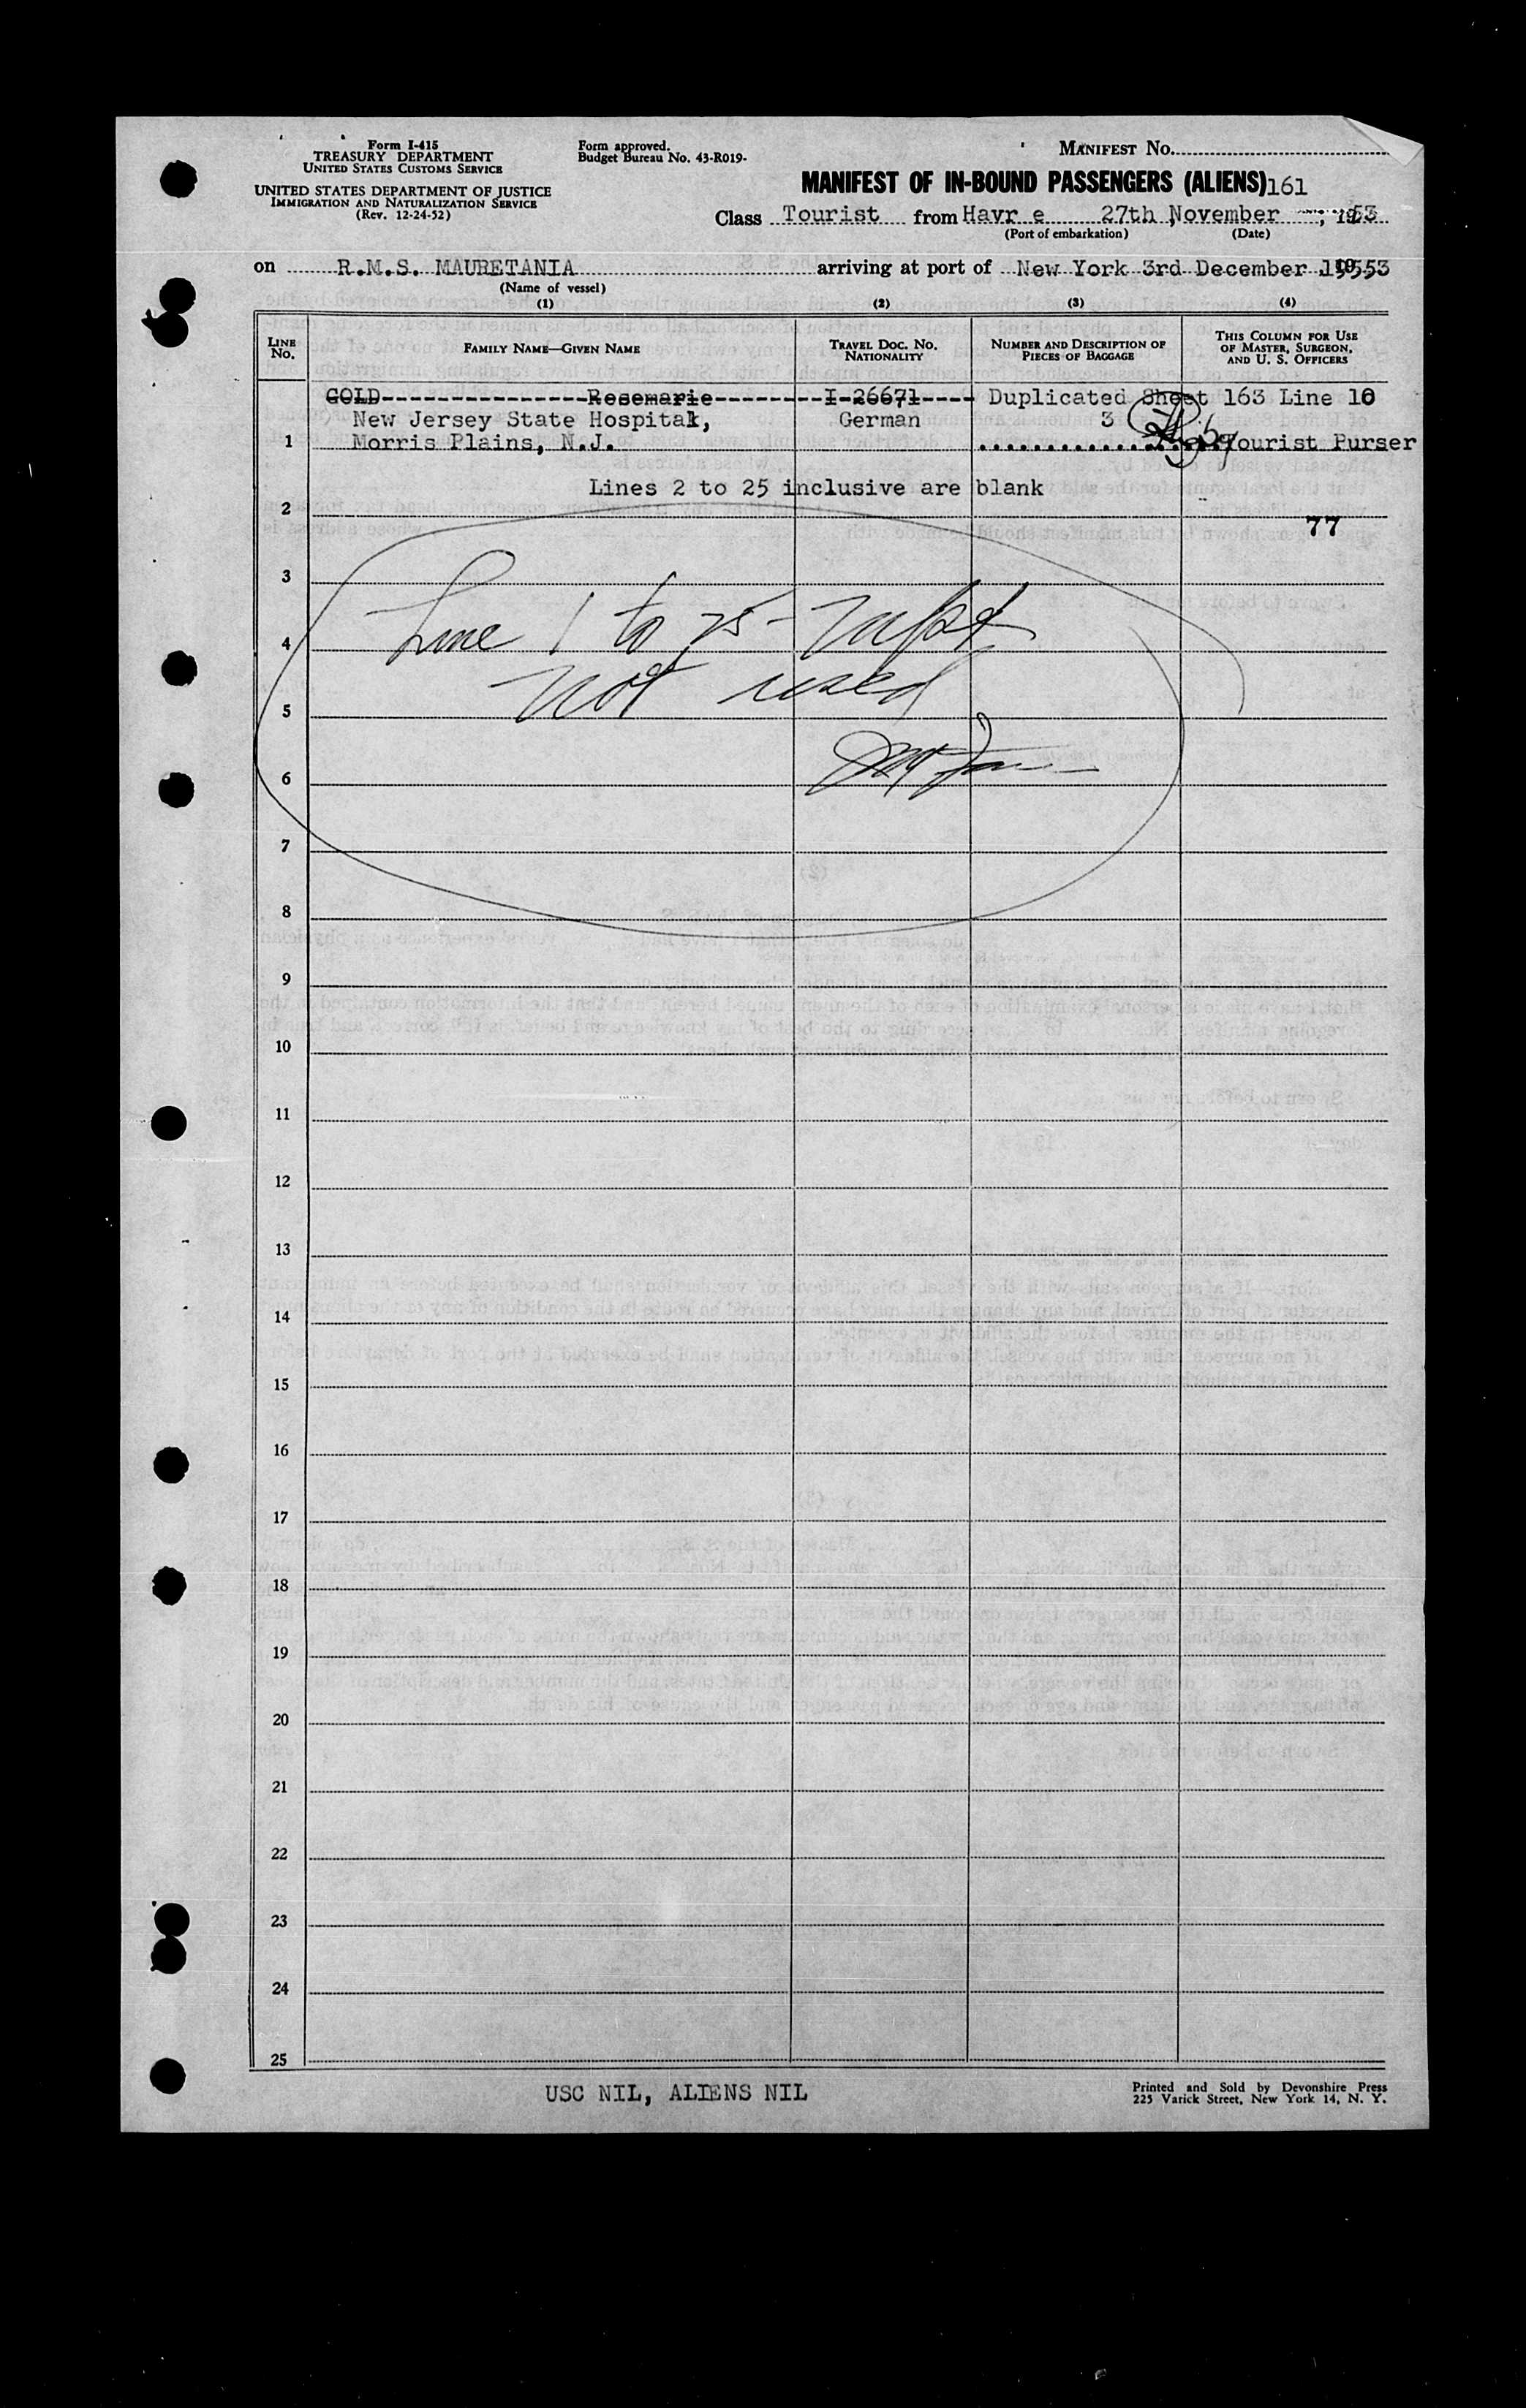 Form I-415
TREASURY DEPARTMENT
UNITED STATES CUSTOMS SERVICE
UNITED STATES DEPARTMENT OF JUSTICE
IMMIGRATION AND NATURALIZATION SERVICE
(Rev. 12-24-52)
Form approved.
Budget Bureau No. 43-R019-
MANIFEST NO.
MANIFEST OF IN-BOUND PASSENGERS (ALIENS) 161
Class Tourist from Havr e 27th November , 1953
(Port of embarkation) (Date)
on R.M.S. MAURETANIA arriving at port of New York 3rd December 1953
(Name of vessel)
(1) (2) (3) (4)
LINE No. FAMILY NAME—GIVEN NAME TRAVEL DOC. NO. NATIONALITY NUMBER AND DESCRIPTION OF PIECES OF BAGGAGE THIS COLUMN FOR USE OF MASTER, SURGEON, AND U. S. OFFICERS
GOLD Rosemarie I-26671 Duplicated Sheet 163 Line 10
New Jersey State Hospital, German 3
1 Morris Plains, N.J. Tourist Purser
Lines 2 to 25 inclusive are blank
2
77
3
Line 1 to 25
4
not used
5
6
7
8
9
10
11
12
13
14
15
16
17
18
19
20
21
22
23
24
25
USC NIL, ALIENS NIL
Printed and Sold by Devonshire Press
225 Varick Street, New York 14, N. Y.